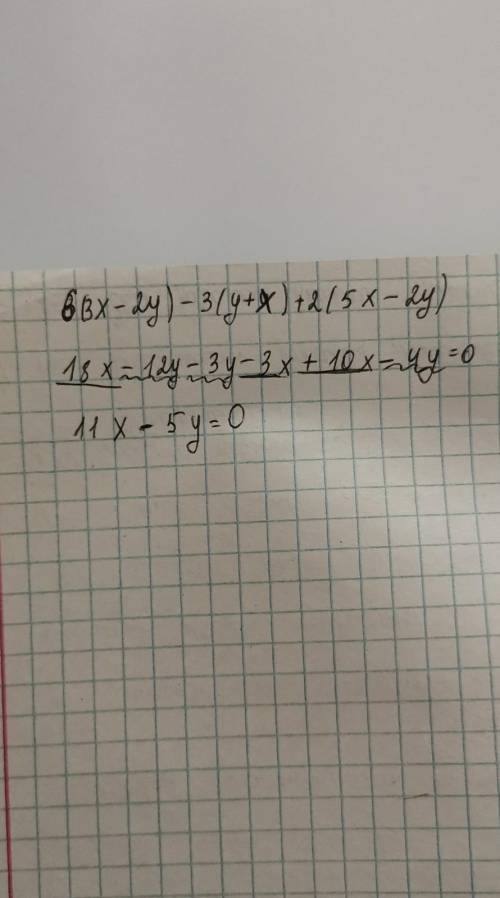 6(3x-2y)-3(y+x)+2(5x-2y)
18x-12y-3y-3x+10x-4y=0
11x-5y=0